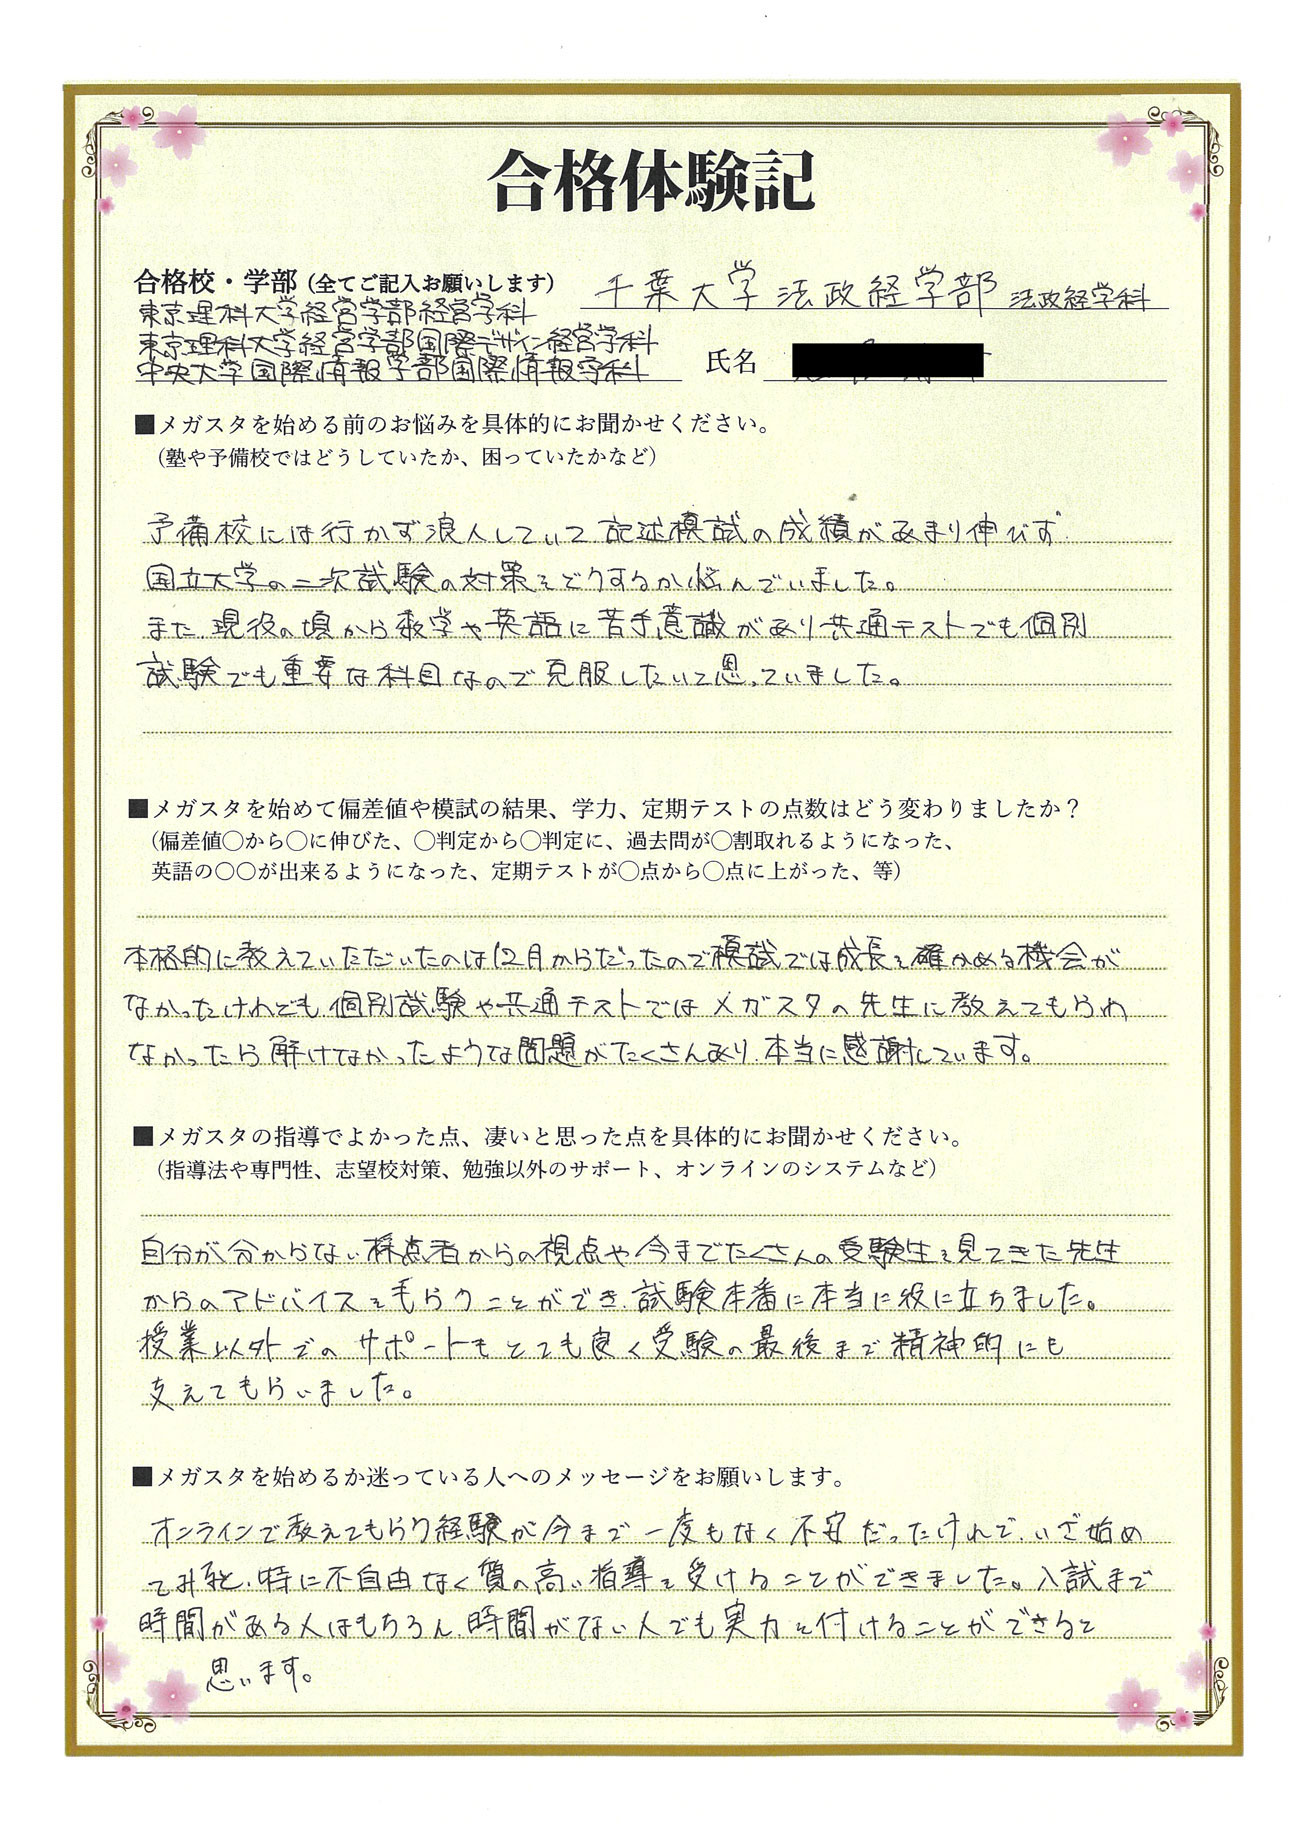 合格体験記
合格校・学部（全てご記入お願いします）
千葉大学法政経学部 法政経学科
東京理科大学経営学部経営学科
東京理科大学経営学部国際デザイン経営学科
中央大学国際情報学部国際情報学科
氏名
■メガスタを始める前のお悩みを具体的にお聞かせください。
（塾や予備校ではどうしていたか、困っていたかなど）
予備校には行かず浪人していて記述模試の成績があまり伸びず
国立大学の二次試験の対策をどうするか悩んでいました。
また、現役の頃から数学や英語に苦手意識があり共通テストでも個別
試験でも重要な科目なので克服したいと思っていました。
■メガスタを始めて偏差値や模試の結果、学力、定期テストの点数はどう変わりましたか？
（偏差値〇から〇に伸びた、〇判定から〇判定に、過去問が〇割取れるようになった、
英語の〇〇が出来るようになった、定期テストが〇点から〇点に上がった、等）
本格的に教えていただいたのは12月からだったので模試では成長を確かめる機会が
なかったけれども、個別試験や共通テストではメガスタの先生に教えてもらわ
なかったら解けなかったような問題がたくさんあり、本当に感謝しています。
■メガスタの指導でよかった点、凄いと思った点を具体的にお聞かせください。
（指導法や専門性、志望校対策、勉強以外のサポート、オンラインのシステムなど）
自分が分からない採点者からの視点や今までたくさんの受験生を見てきた先生
からのアドバイスをもらうことができ、試験本番に本当に役に立ちました。
授業以外でのサポートもとても良く受験の最後まで精神的にも
支えてもらいました。
■メガスタを始めるか迷っている人へのメッセージをお願いします。
オンラインで教えてもらう経験が今まで一度もなく不安だったけれど、いざ始め
てみると、特に不自由なく質の高い指導を受けることができました。入試まで
時間がある人はもちろん、時間がない人でも実力を付けることができると
思います。